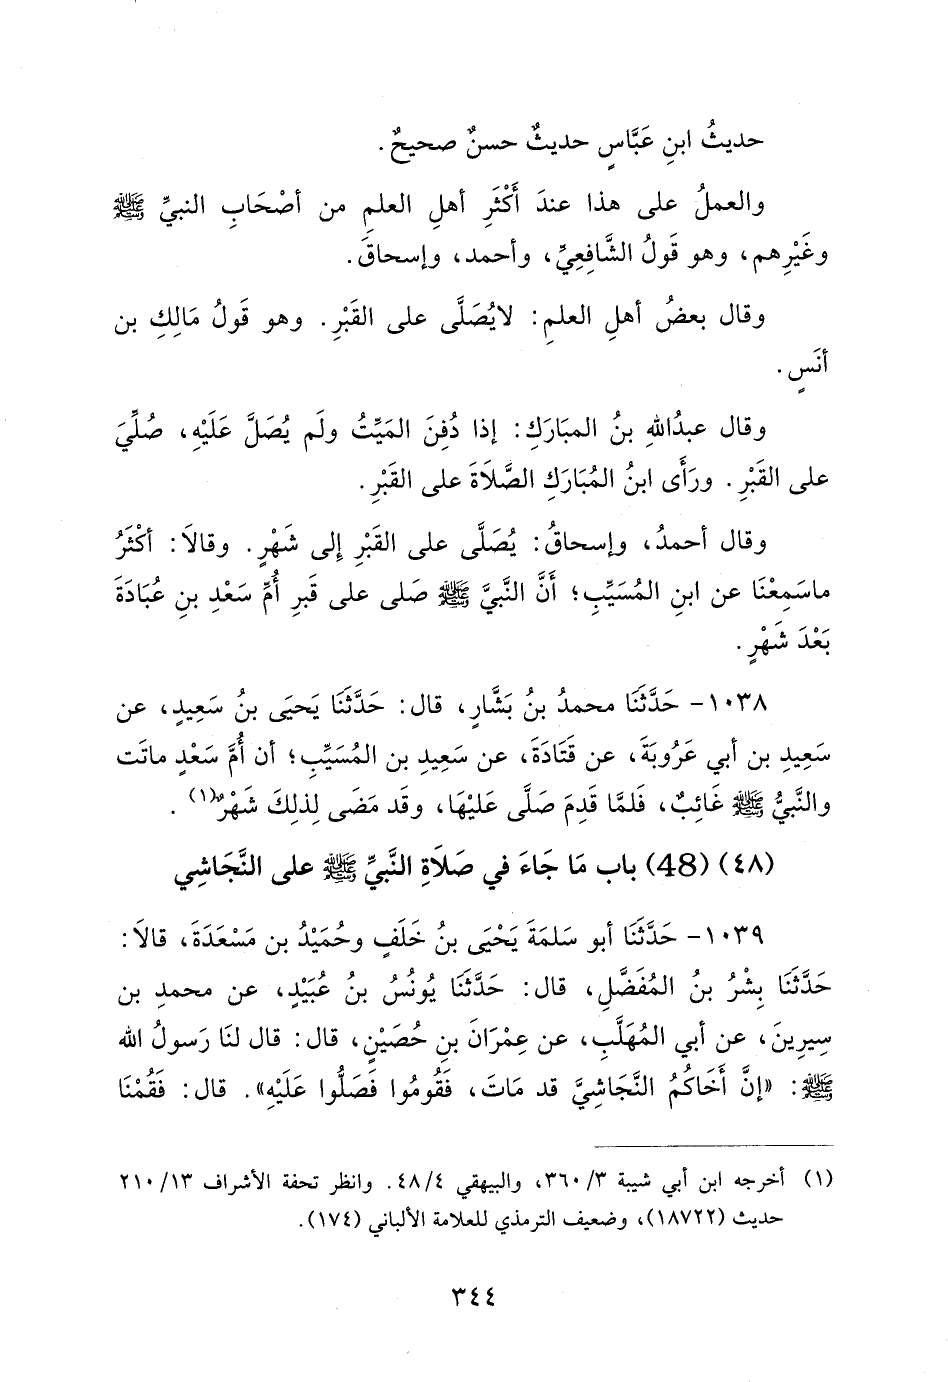 حديثُ ابنِ عَبَّاسٍ حديثٌ حسنٌ صحيحٌ.
والعملُ على هذا عندَ أَكْثَرِ أهلِ العلمِ من أصْحَابِ النبيِّ ﷺ
وغَيْرِهم، وهو قَولُ الشَّافِعِيِّ، وأحمد، وإسحاقَ.
وقال بعضُ أهلِ العلمِ: لايُصَلَّى على القَبْرِ. وهو قَولُ مَالِكِ بن
أنَسٍ.
وقال عبدُاللهِ بنُ المبَارَكِ: إذا دُفِنَ المَيِّتُ ولَم يُصَلَّ عَلَيْهِ، صُلِّيَ
على القَبْرِ. ورَأَى ابنُ المُبَارَكِ الصَّلَاةَ على القَبْرِ.
وقال أحمدُ، وإسحاقُ: يُصَلَّى على القَبْرِ إلى شَهْرٍ. وقالَا: أكْثَرُ
ماسَمِعْنَا عن ابنِ المُسَيِّبِ؛ أنَّ النَّبيَّ ﷺ صَلى على قَبرِ أُمِّ سَعْدِ بنِ عُبَادَةَ
بَعْدَ شَهْرٍ.
١٠٣٨- حَدَّثَنَا محمدُ بنُ بَشَّارٍ، قال: حَدَّثَنَا يَحيَى بنُ سَعِيدٍ، عن
سَعِيدِ بن أبي عَرُوبَةَ، عن قَتَادَةَ، عن سَعِيدِ بن المُسَيِّبِ؛ أن أُمَّ سَعْدٍ ماتَت
والنَّبيُّ ﷺ غَائِبٌ، فَلمَّا قَدِمَ صَلَّى عَلَيْهَا، وقَد مَضَى لِذلِكَ شَهْرٌ(١).
(٤٨) (48) باب مَا جَاءَ في صَلَاةِ النَّبيِّ ﷺ على النَّجَاشِي
١٠٣٩- حَدَّثَنَا أبو سَلمَةَ يَحْيَى بنُ خَلَفٍ وحُمَيْدُ بن مَسْعَدَةَ، قالَا:
حَدَّثَنَا بِشْرُ بنُ المُفَضَّلِ، قال: حَدَّثَنَا يُونُسُ بنُ عُبَيْدٍ، عن محمدِ بن
سِيرِينَ، عن أبي المُهَلَّبِ، عن عِمْرَانَ بنِ حُصَيْنٍ، قال: قال لنَا رَسولُ الله
ﷺ: «إنَّ أَخَاكُمُ النَّجَاشِيَّ قد مَاتَ، فَقُومُوا فَصَلُّوا عَلَيْهِ». قال: فَقُمْنَا
(١) أخرجه ابن أبي شيبة ٣/ ٣٦٠، والبيهقي ٤/ ٤٨. وانظر تحفة الأشراف ١٣/ ٢١٠
حديث (١٨٧٢٢)، وضعيف الترمذي للعلامة الألباني (١٧٤).
٣٤٤